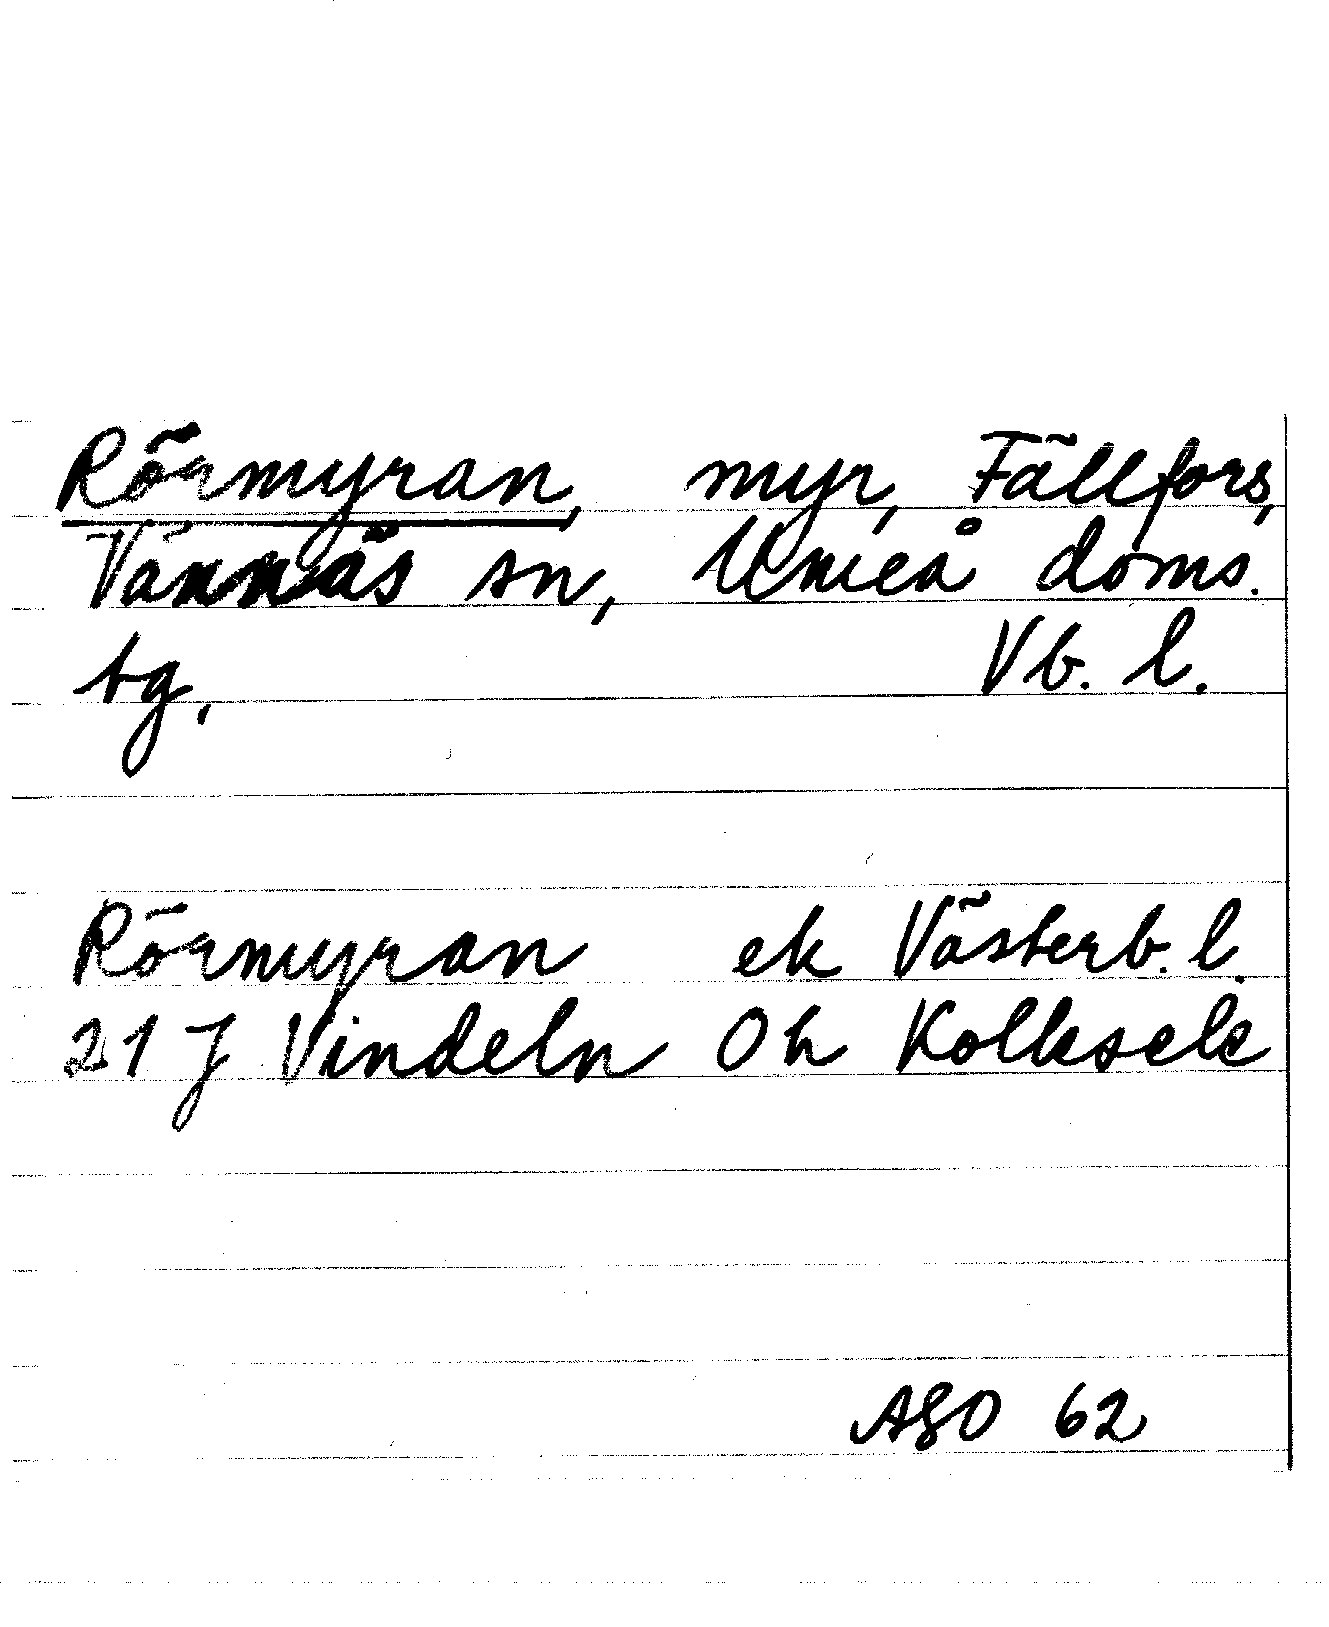 Rörmyran, myr, Fällfors,
Vännäs sn, Umeå doms.
tg, Vb. l.
Rörmyran ek Västerb. l.
21 J Vindeln 0 h Kolksele
AGO 62